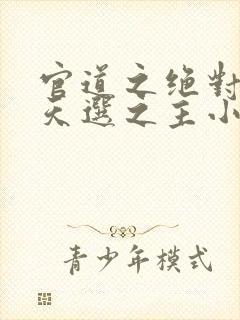 官道之绝對
天選之主小
青少年模式